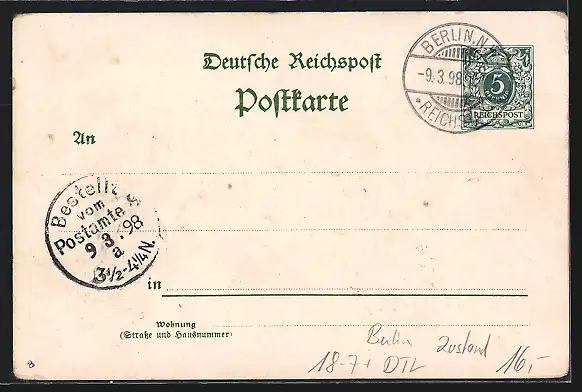 Deutsche Reichspost
Postkarte
BERLIN. N.
-9.3.98
*REICHS
5
REICHSPOST
An
Bestellt
vom
Postamte
9 3. 98
a
3½-4¼N.
in
Wohnung
(Straße und Hausnummer)
Berlin Zustand
18-7+ DTL 16,-